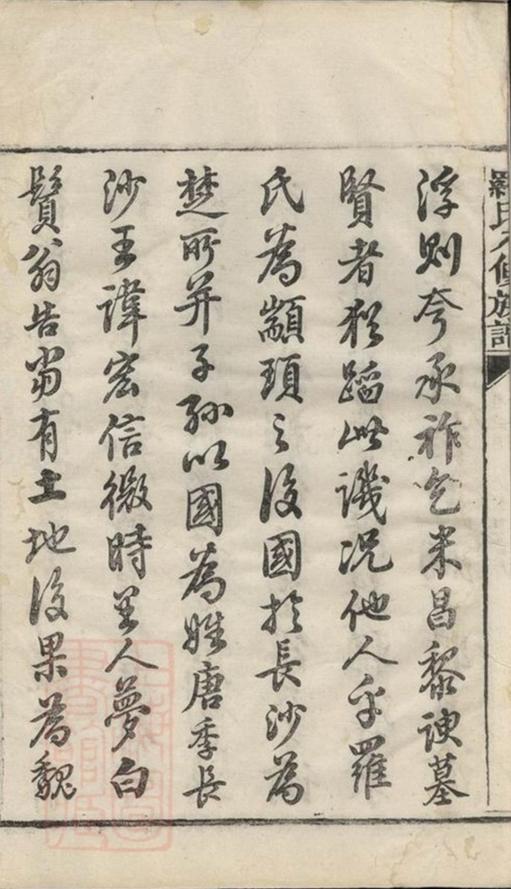 羅氏六修族譜
浮則夸承祚乞米昌黎諛墓
賢者猶蹈此譏况他人乎羅
氏為顓頊之後國於長沙為
楚所并子孫以國為姓唐季長
沙王諱宏信微時里人夢白
鬚翁告當有土地後果為魏